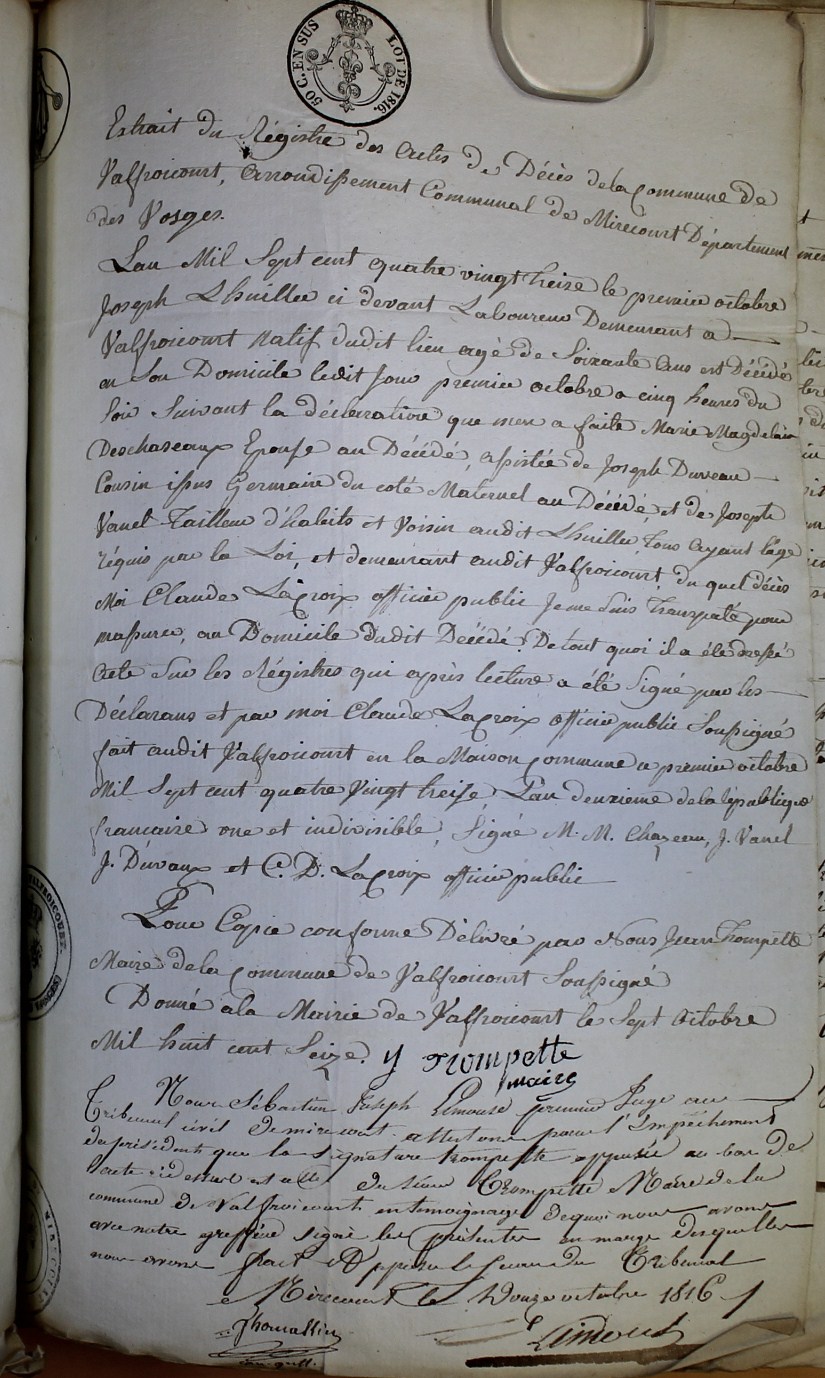 50 C. EN SUS LOI DE 1816.
Extrait du Régistre des actes de Décès de la Commune de
Valfroicourt, arrondissement Communal de Mirecourt Département
des Vosges.
Lan Mil Sept cent quatre vingt treize le premier octobre
Joseph Lhuillier ci devant Laboureur Demeurant a
Valfroicourt natif dudit lieu agé de Soixante ans est Décédé
en Son Domicile ledit Jour premier octobre a cinq heures du
Soir Suivant la déclarative que men a faite Marie Magdelain
Deschaseaux Epouse au Décédé, assistée de Joseph Duveau
Cousin issus Germaire du coté Maternel au Décédé, et de Joseph
Vanel Tailleur d'habits et Voisin audit Lhuillier, Tous ayant lage
réquis par la Loi, et demeurant audit Valfroicourt du quel décès
Moi Claude LaCroix officier public Je me Suis Transporté pour
massurer, au Domicile dudit Décédé. De tout quoi il a été dressé
acte Sur les Régistres qui après lecture a été Signé par les
Déclarans et par moi Claude LaCroix officier public Soussigné
fait audit Valfroicourt en la Maison Commune a premier octobre
Mil Sept cent quatre Vingt treise, Lan deuxieme de la République
francaise une et indivisible, Signé M. M. Chazeau, J. Vanel
J. Duvaux et C. D. LaCroix officier public
Pour Copie conforme Délivré par Nous Jean Trompette
Maire de la Commune de Valfroicourt Soussigné
Donné a la Mairie de Valfroicourt le Sept Octobre
Mil huit cent Seize. J Trompette
maire
Nous Sébastien Joseph Limouse premier Juge au
Tribunal civil de mirecourt attestons pour l'Empéchement
du président que la signature trompette apposée au bas de
lacte ci dessus est celle du sieur Trompette Maire de la
commune de Valfroicourt en temoignage de quoi nous avons
avec notre greffier signé les présentes en marge desquelles
nous avons fait apposer le sceau du Tribunal
a Mirecourt le Douze octobre 1816
Thomassin
Limouse